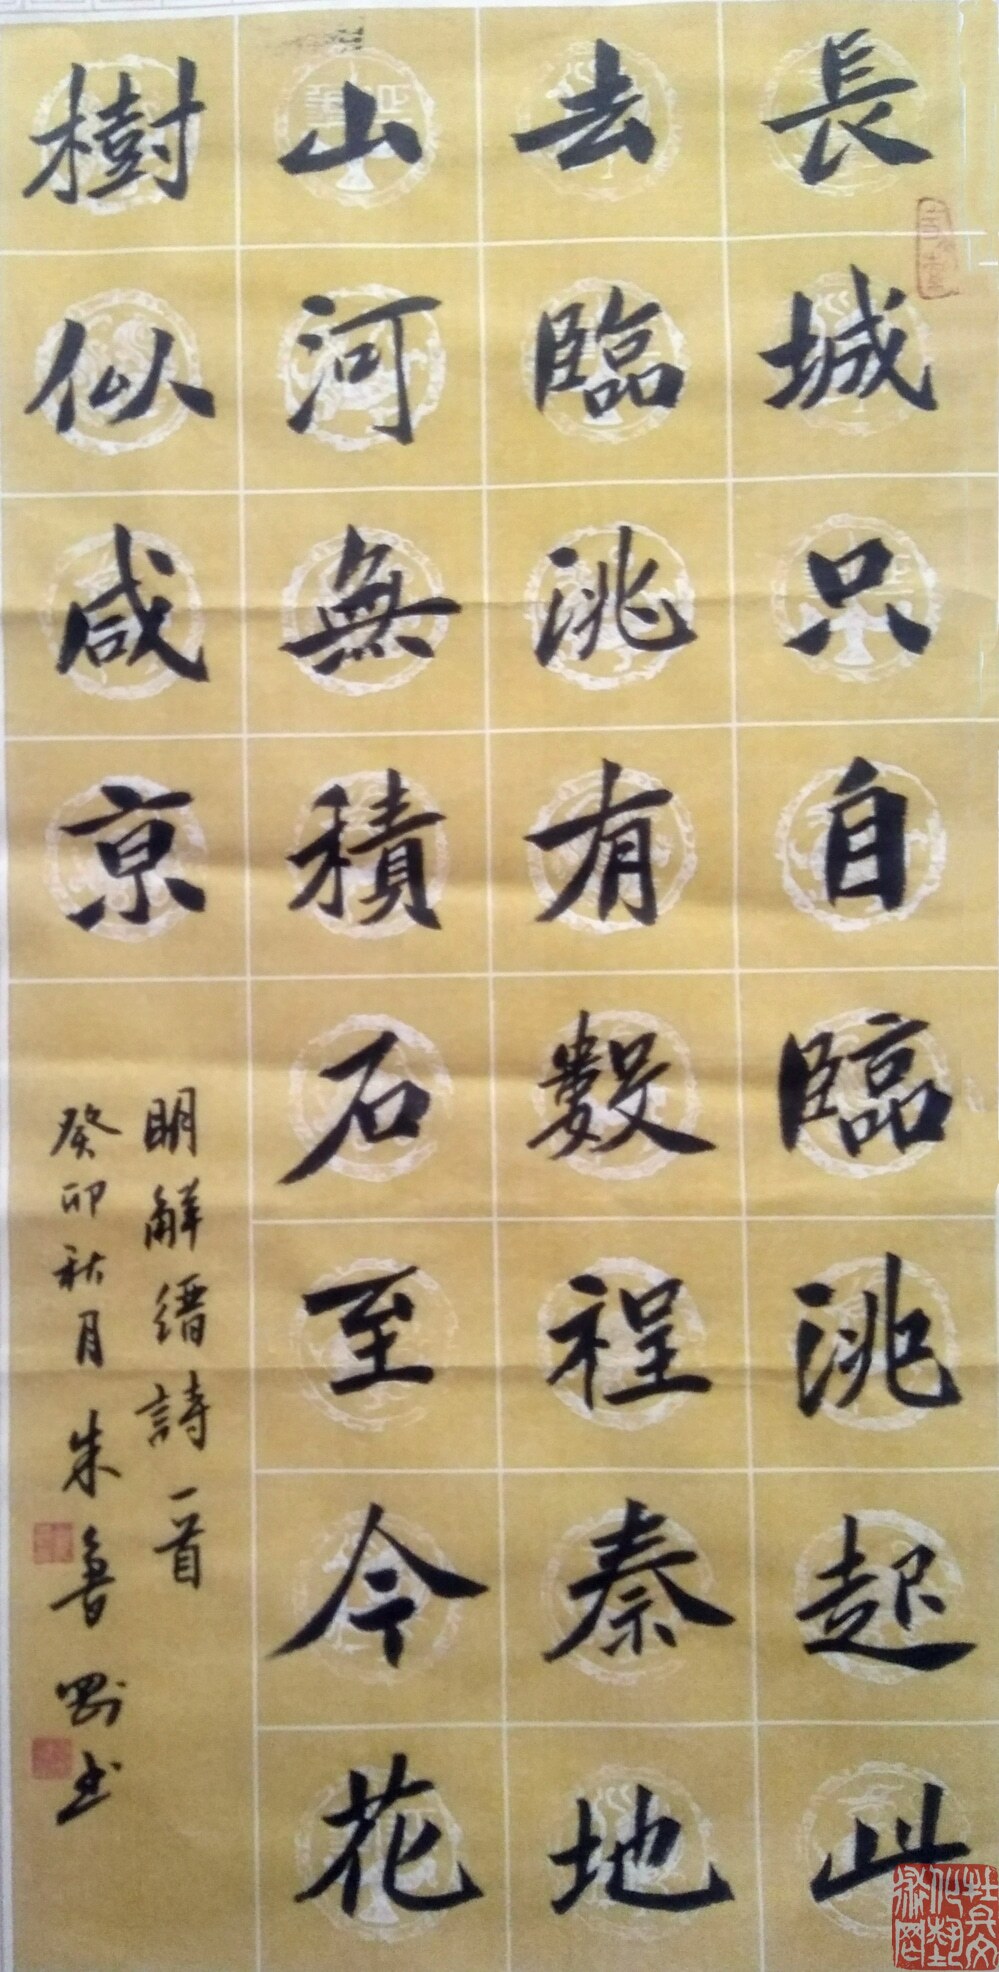 長城只自臨洮起此
去臨洮有數程秦地
山河無積石至今花
樹似咸京
明解缙詩一首
癸卯秋月朱魯剛书